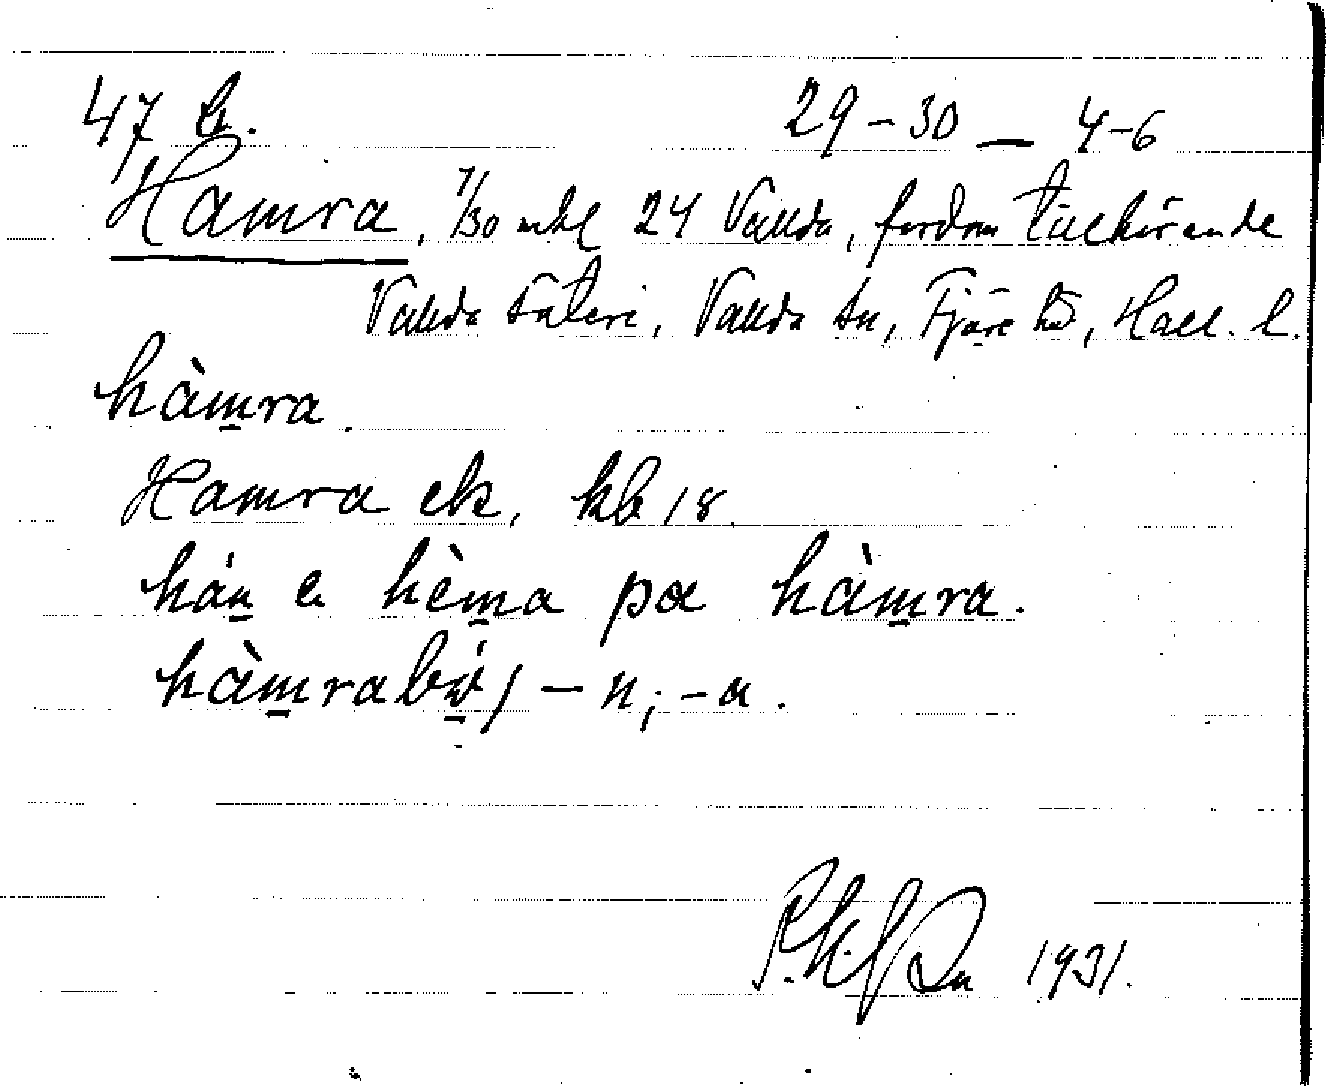 47 b. 29-30 — 4-6
Hamra, 7/30 mtl 24 Vallda, fordom tillhörande
Vallda säteri, Vallda sn, Fjäre hd, Hall. l.
hàm̲ra.
Hamra ek, kb 18.
hán̲ e hèm̲a pα hàm̲ra.
hàm̲rabώ̲) – n; – a.
1931.